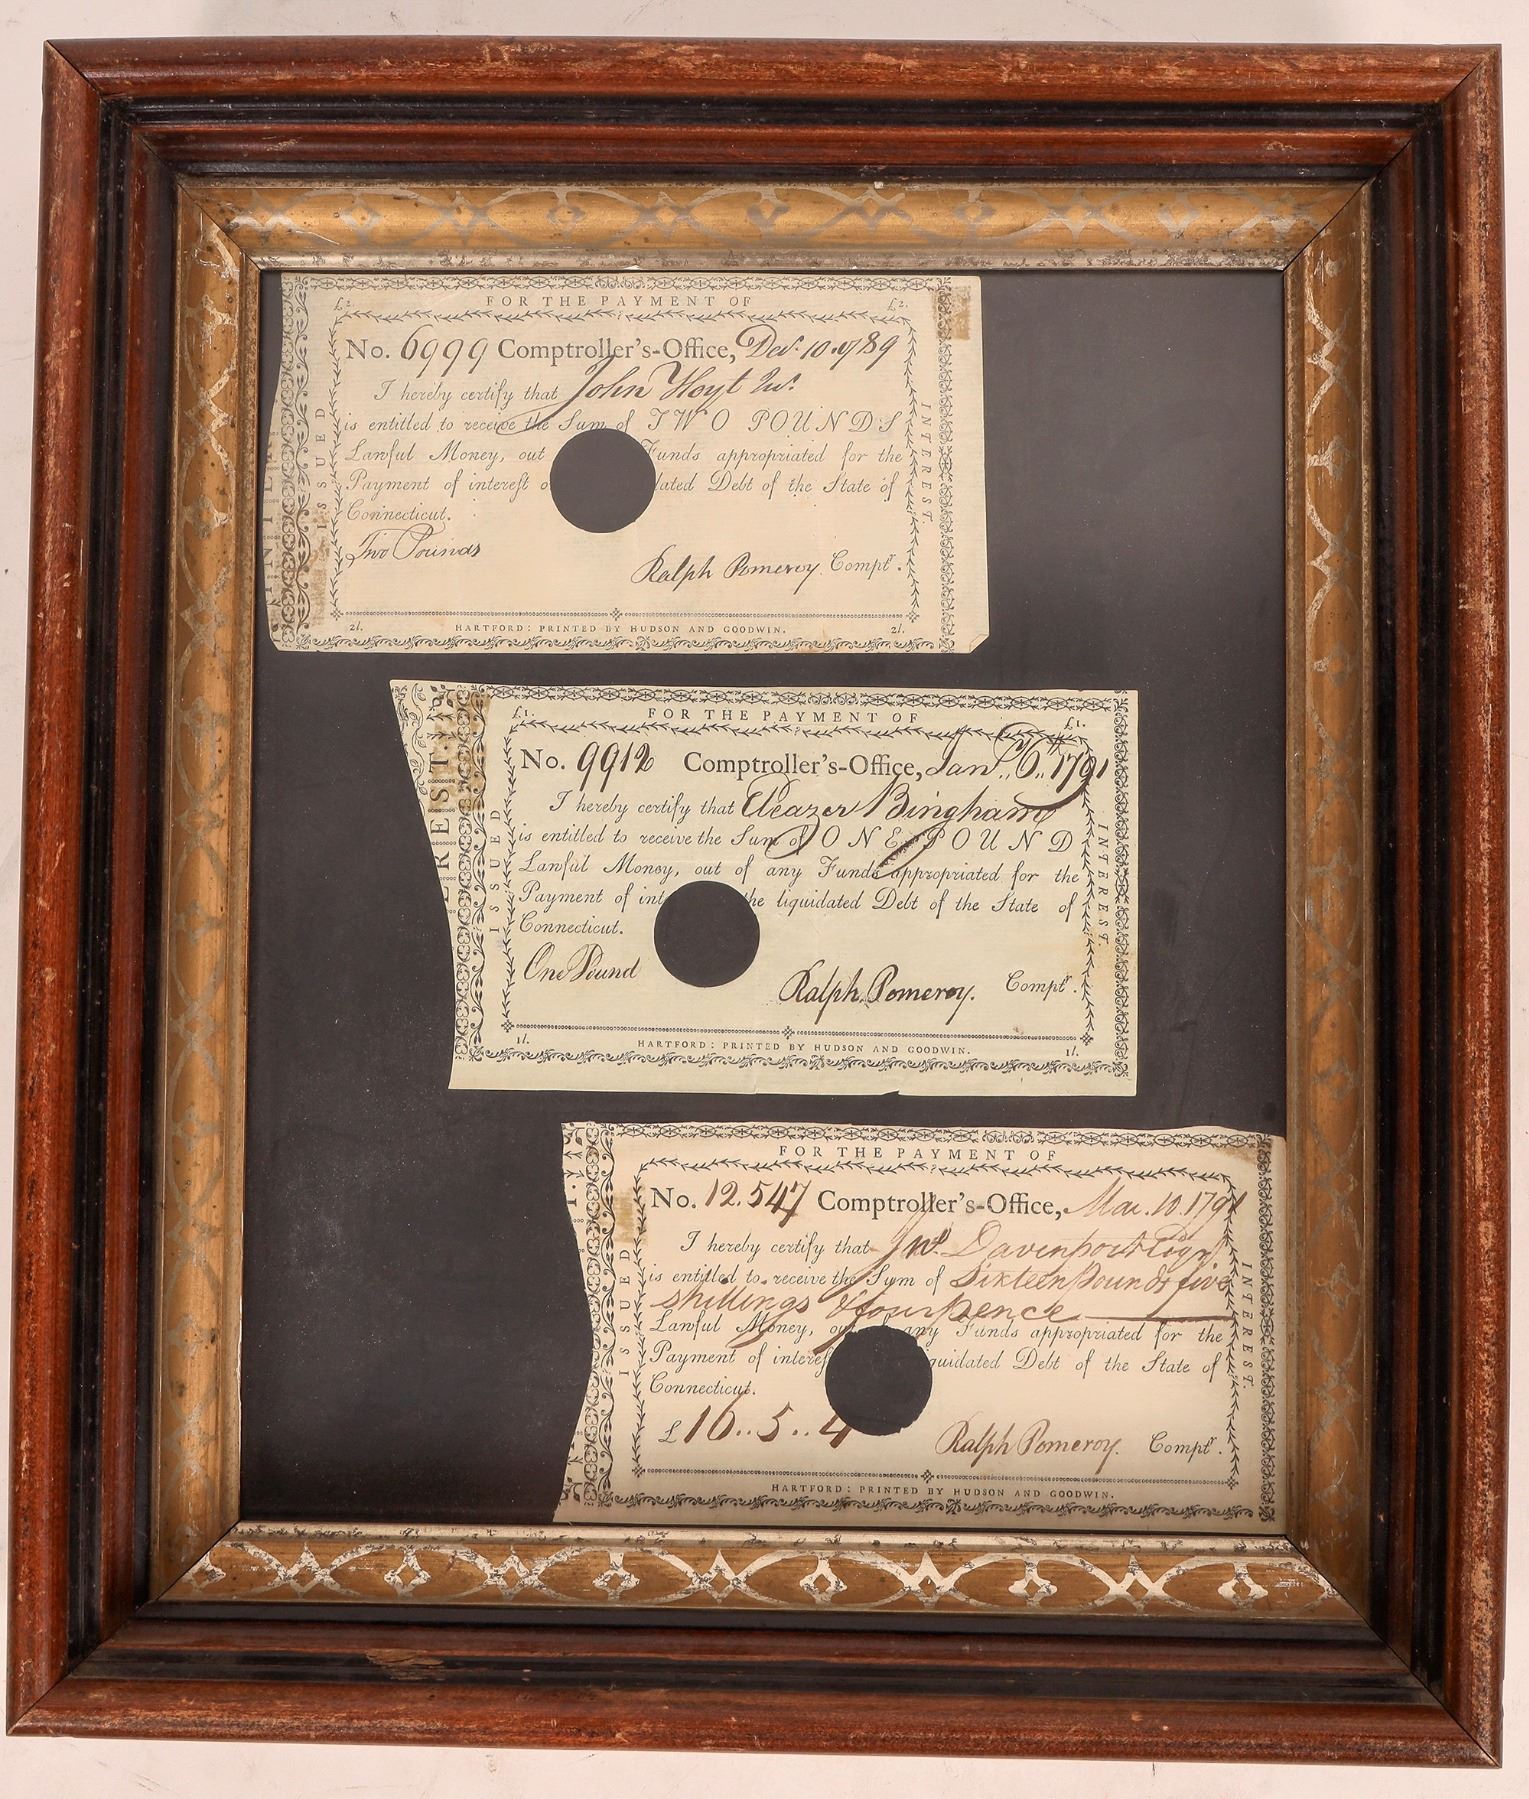 FOR THE PAYMENT OF
£2. £2.
No. 6999 Comptroller's-Office, Decr. 10. 1789
I hereby certify that John Hoyt Junr.
is entitled to receive the Sum of TWO POUNDS
Lawful Money, out Funds appropriated for the
Payment of interest o dated Debt of the State of
Connecticut.
Two Pounds
Ralph Pomeroy Comptr.
2l. HARTFORD: PRINTED BY HUDSON AND GOODWIN. 2l.
ISSUED
INTEREST.
FOR THE PAYMENT OF
£1. £1.
No. 9912 Comptroller's-Office, Jany. 6th 1791
I hereby certify that Eleazer Bingham
is entitled to receive the Sum of ONE POUND
Lawful Money, out of any Funds appropriated for the
Payment of int the liquidated Debt of the State of
Connecticut.
One Pound
Ralph Pomeroy. Comptr.
1l. HARTFORD: PRINTED BY HUDSON AND GOODWIN. 1l.
EREST.
ISSUED
INTEREST.
FOR THE PAYMENT OF
No. 12.547 Comptroller's-Office, Mar. 10. 1791
I hereby certify that Jno. Davenport Esqr
is entitled to receive the Sum of Sixteen pounds five
shillings & four pence
Lawful Money, ou any Funds appropriated for the
Payment of interes quidated Debt of the State of
Connecticut.
£16..5..4
Ralph Pomeroy. Comptr.
HARTFORD: PRINTED BY HUDSON AND GOODWIN.
ISSUED
INTEREST.